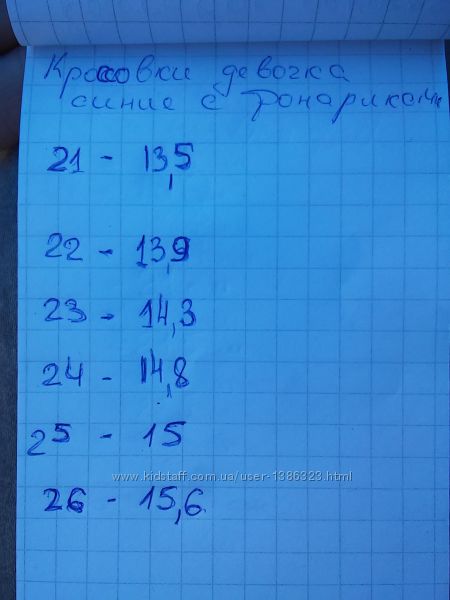 Кроссовки девочка
синие с фонариками
21 - 13,5
22 - 13,9
23 - 14,3
24 - 14,8
25 - 15
26 - 15,6
www.kidstaff.com.ua/user-1386323.html